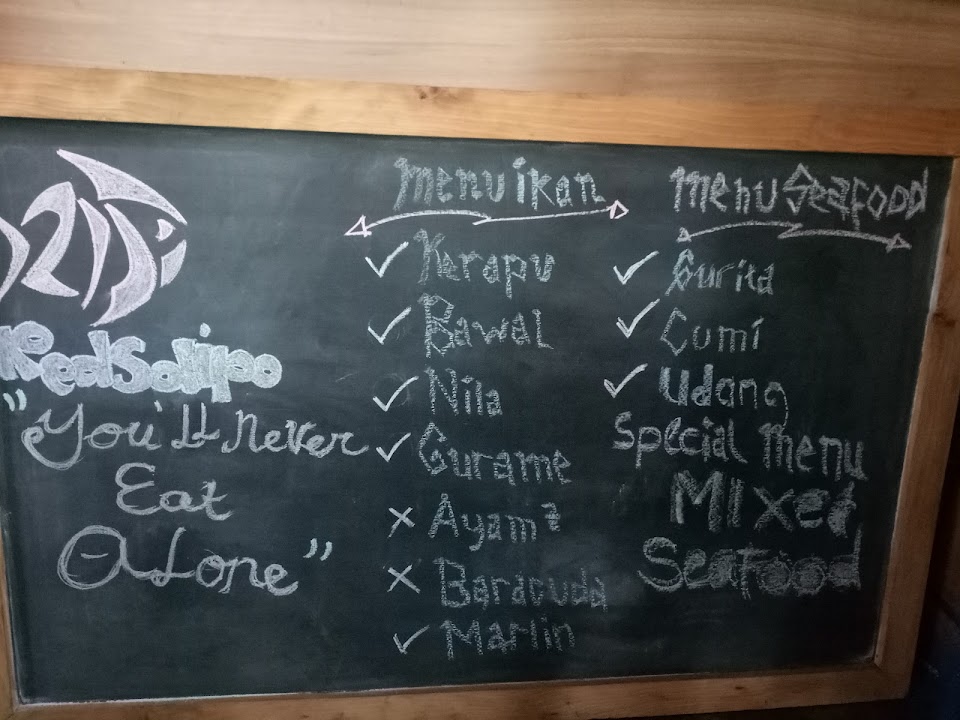 RealSolipo
"You'll never
Eat
Alone"
Menu ikan
✓ Kerapu
✓ Bawal
✓ Nila
✓ Gurame
× Ayam²
× Baracuda
✓ Marlin
Menu Seafood
✓ Gurita
✓ Cumi
✓ Udang
Special Menu
Mixed
Seafood